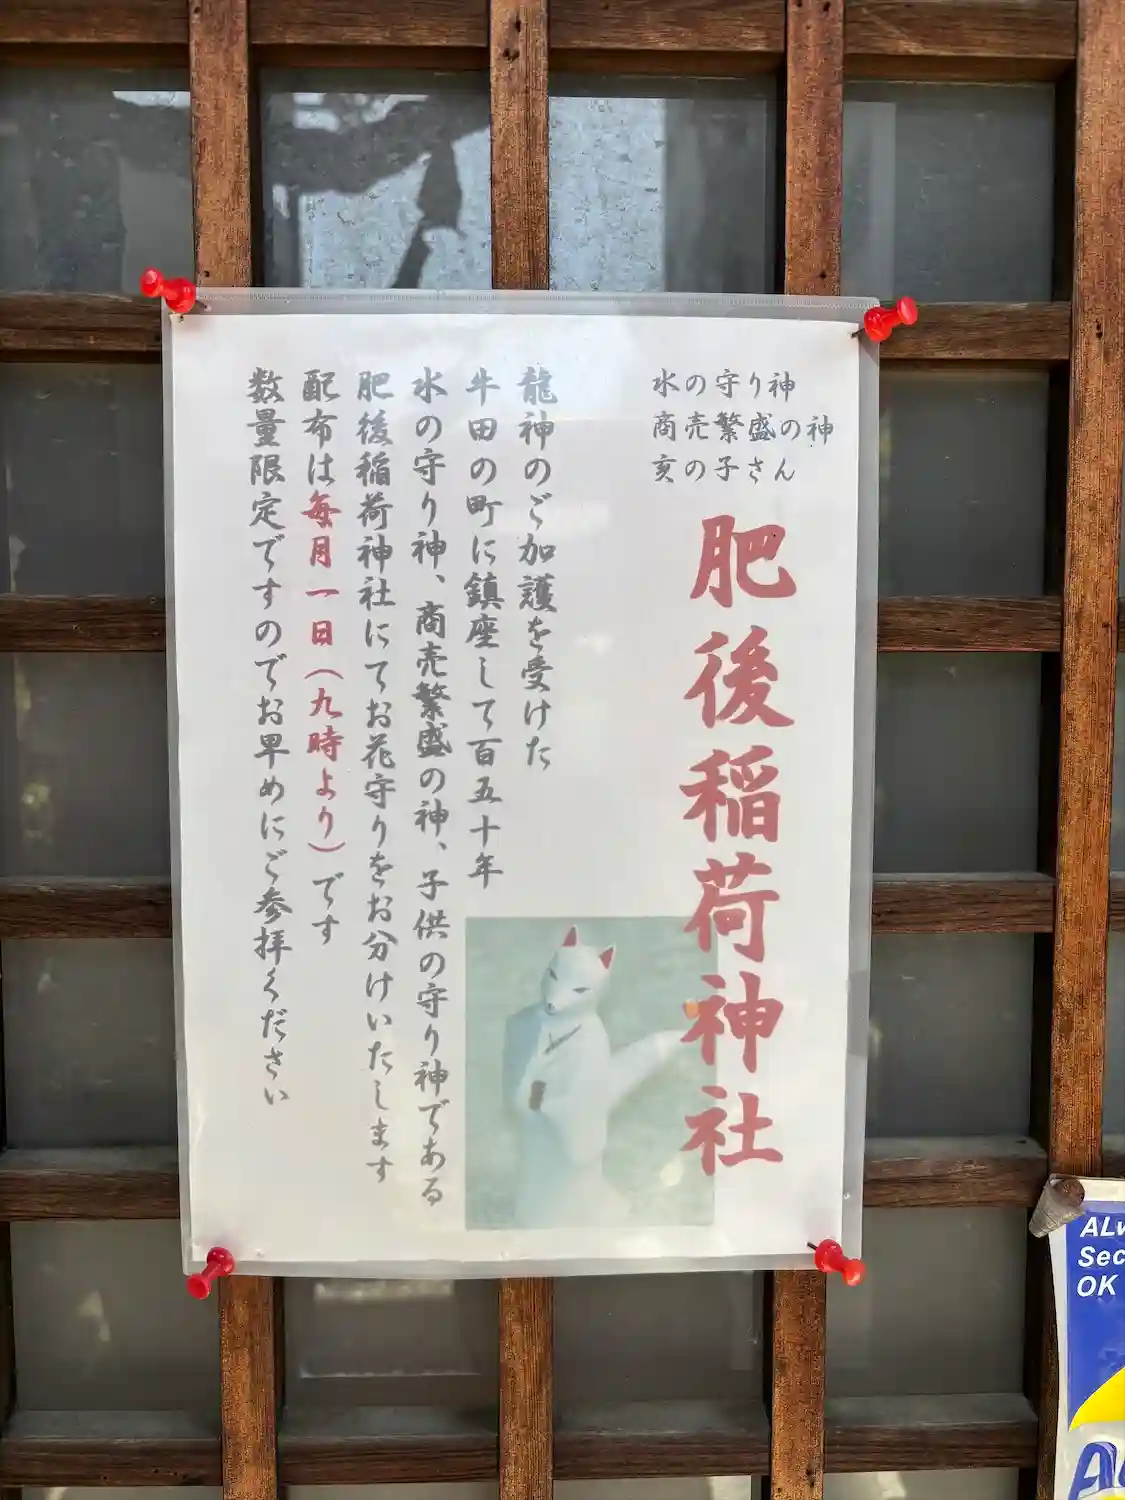 水の守り神
商売繁盛の神
亥の子さん
肥後稲荷神社
龍神のご加護を受けた
牛田の町に鎮座して百五十年
水の守り神、商売繁盛の神、子供の守り神である
肥後稲荷神社にてお花守りをお分けいたします
配布は毎月一日(九時より)です
数量限定ですのでお早めにご参拝ください
OK